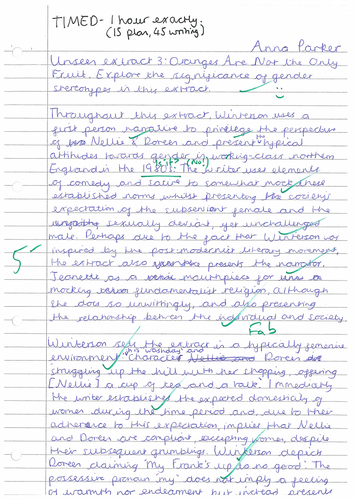 TIMED - 1 hour exactly.
(15 plan, 45 writing)
Anna Parker
Unseen extract 3: Oranges Are Not the Only
Fruit. Explore the significance of gender
stereotypes in this extract.
Throughout this extract, Winterson uses a
first person narrative to privilege the perspective
of Nellie & Doreen and present the typical
attitudes towards gender in working-class northern
England in the 1980s. (No!) The writer uses elements
of comedy and satire to somewhat mock these
established norms whilst presenting the society's
expectation of the subservient female and the
sexually deviant, yet unchallenged
male. Perhaps due to the fact that Winterson was
inspired by the post-modernist literary movement,
the extract also present the narrator,
Jeanette as a mouthpiece for
mocking fundamentalist religion, although
she does so unwittingly, and also presenting
the relationship between the individual and society.
5
Fab
Winterson sets the extract in a typically feminine
environment "this washday" and
Character Doreen
struggling up the hill with her shopping, offering
[Nellie] a cup of tea and a talk. Immediately
the writer establishes the expected domesticity of
women during the time period and, due to their
adherence to this expectation, implies that Nellie
and Doreen are compliant, accepting women, despite
their subsequent grumblings. Winterson depicts
Doreen claiming "My Frank's up to no good". The
possessive pronoun "my" does not imply a feeling
of warmth nor endearment but instead presents